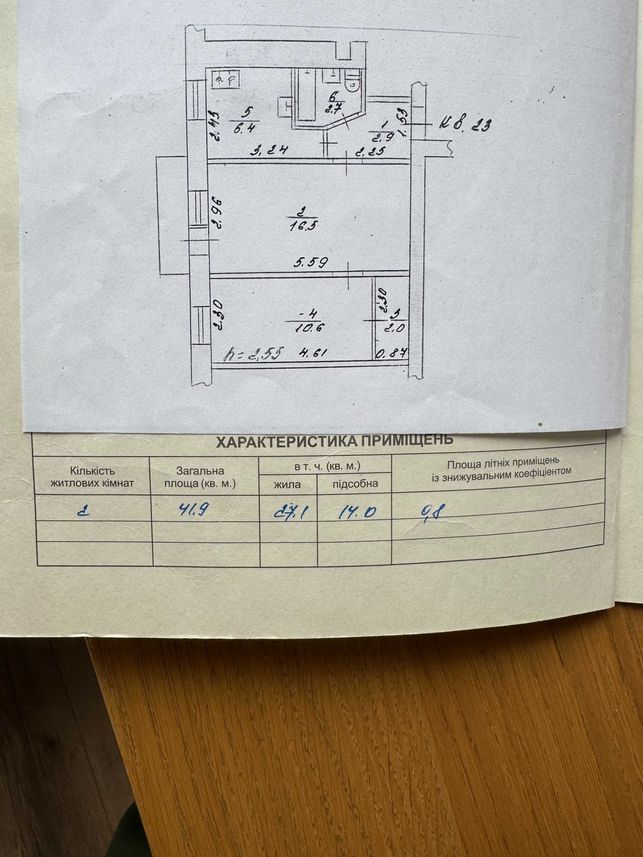 6
2.7
5
6.4
2.43
3,24
1
2.9
1.53
2,25
КВ. 23
2
16.5
2.96
5.59
2.30
-4
10.6
2.30
3
2.0
h=2,55
4.61
0.87
ХАРАКТЕРИСТИКА ПРИМІЩЕНЬ
Кількість
житлових кімнат
Загальна
площа (кв. м.)
в т. ч. (кв. м.)
жила
підсобна
Площа літніх приміщень
із знижувальним коефіцієнтом
2
41.9
27.1
14.0
0,8